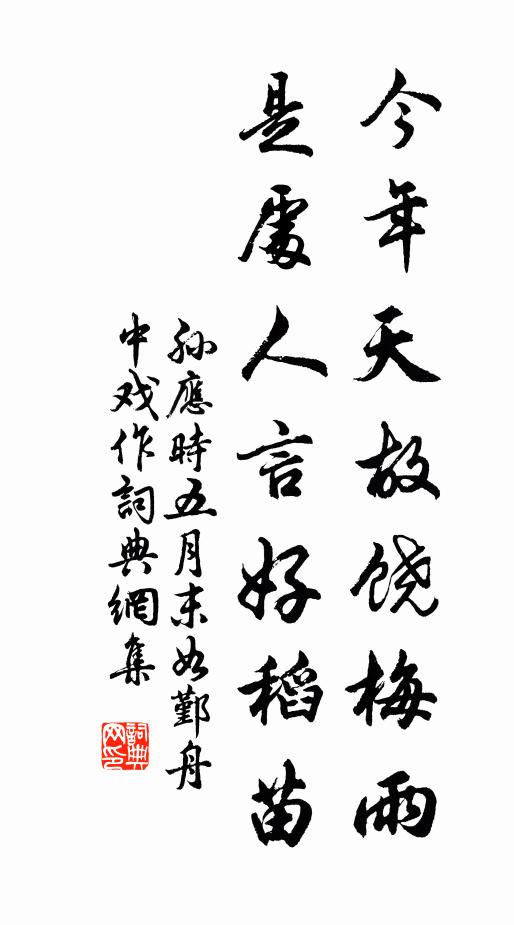 今年天故饶梅雨
是處人言好稻苗
孫應時五月末如鄞舟
中戏作詞典網集
詞典网印